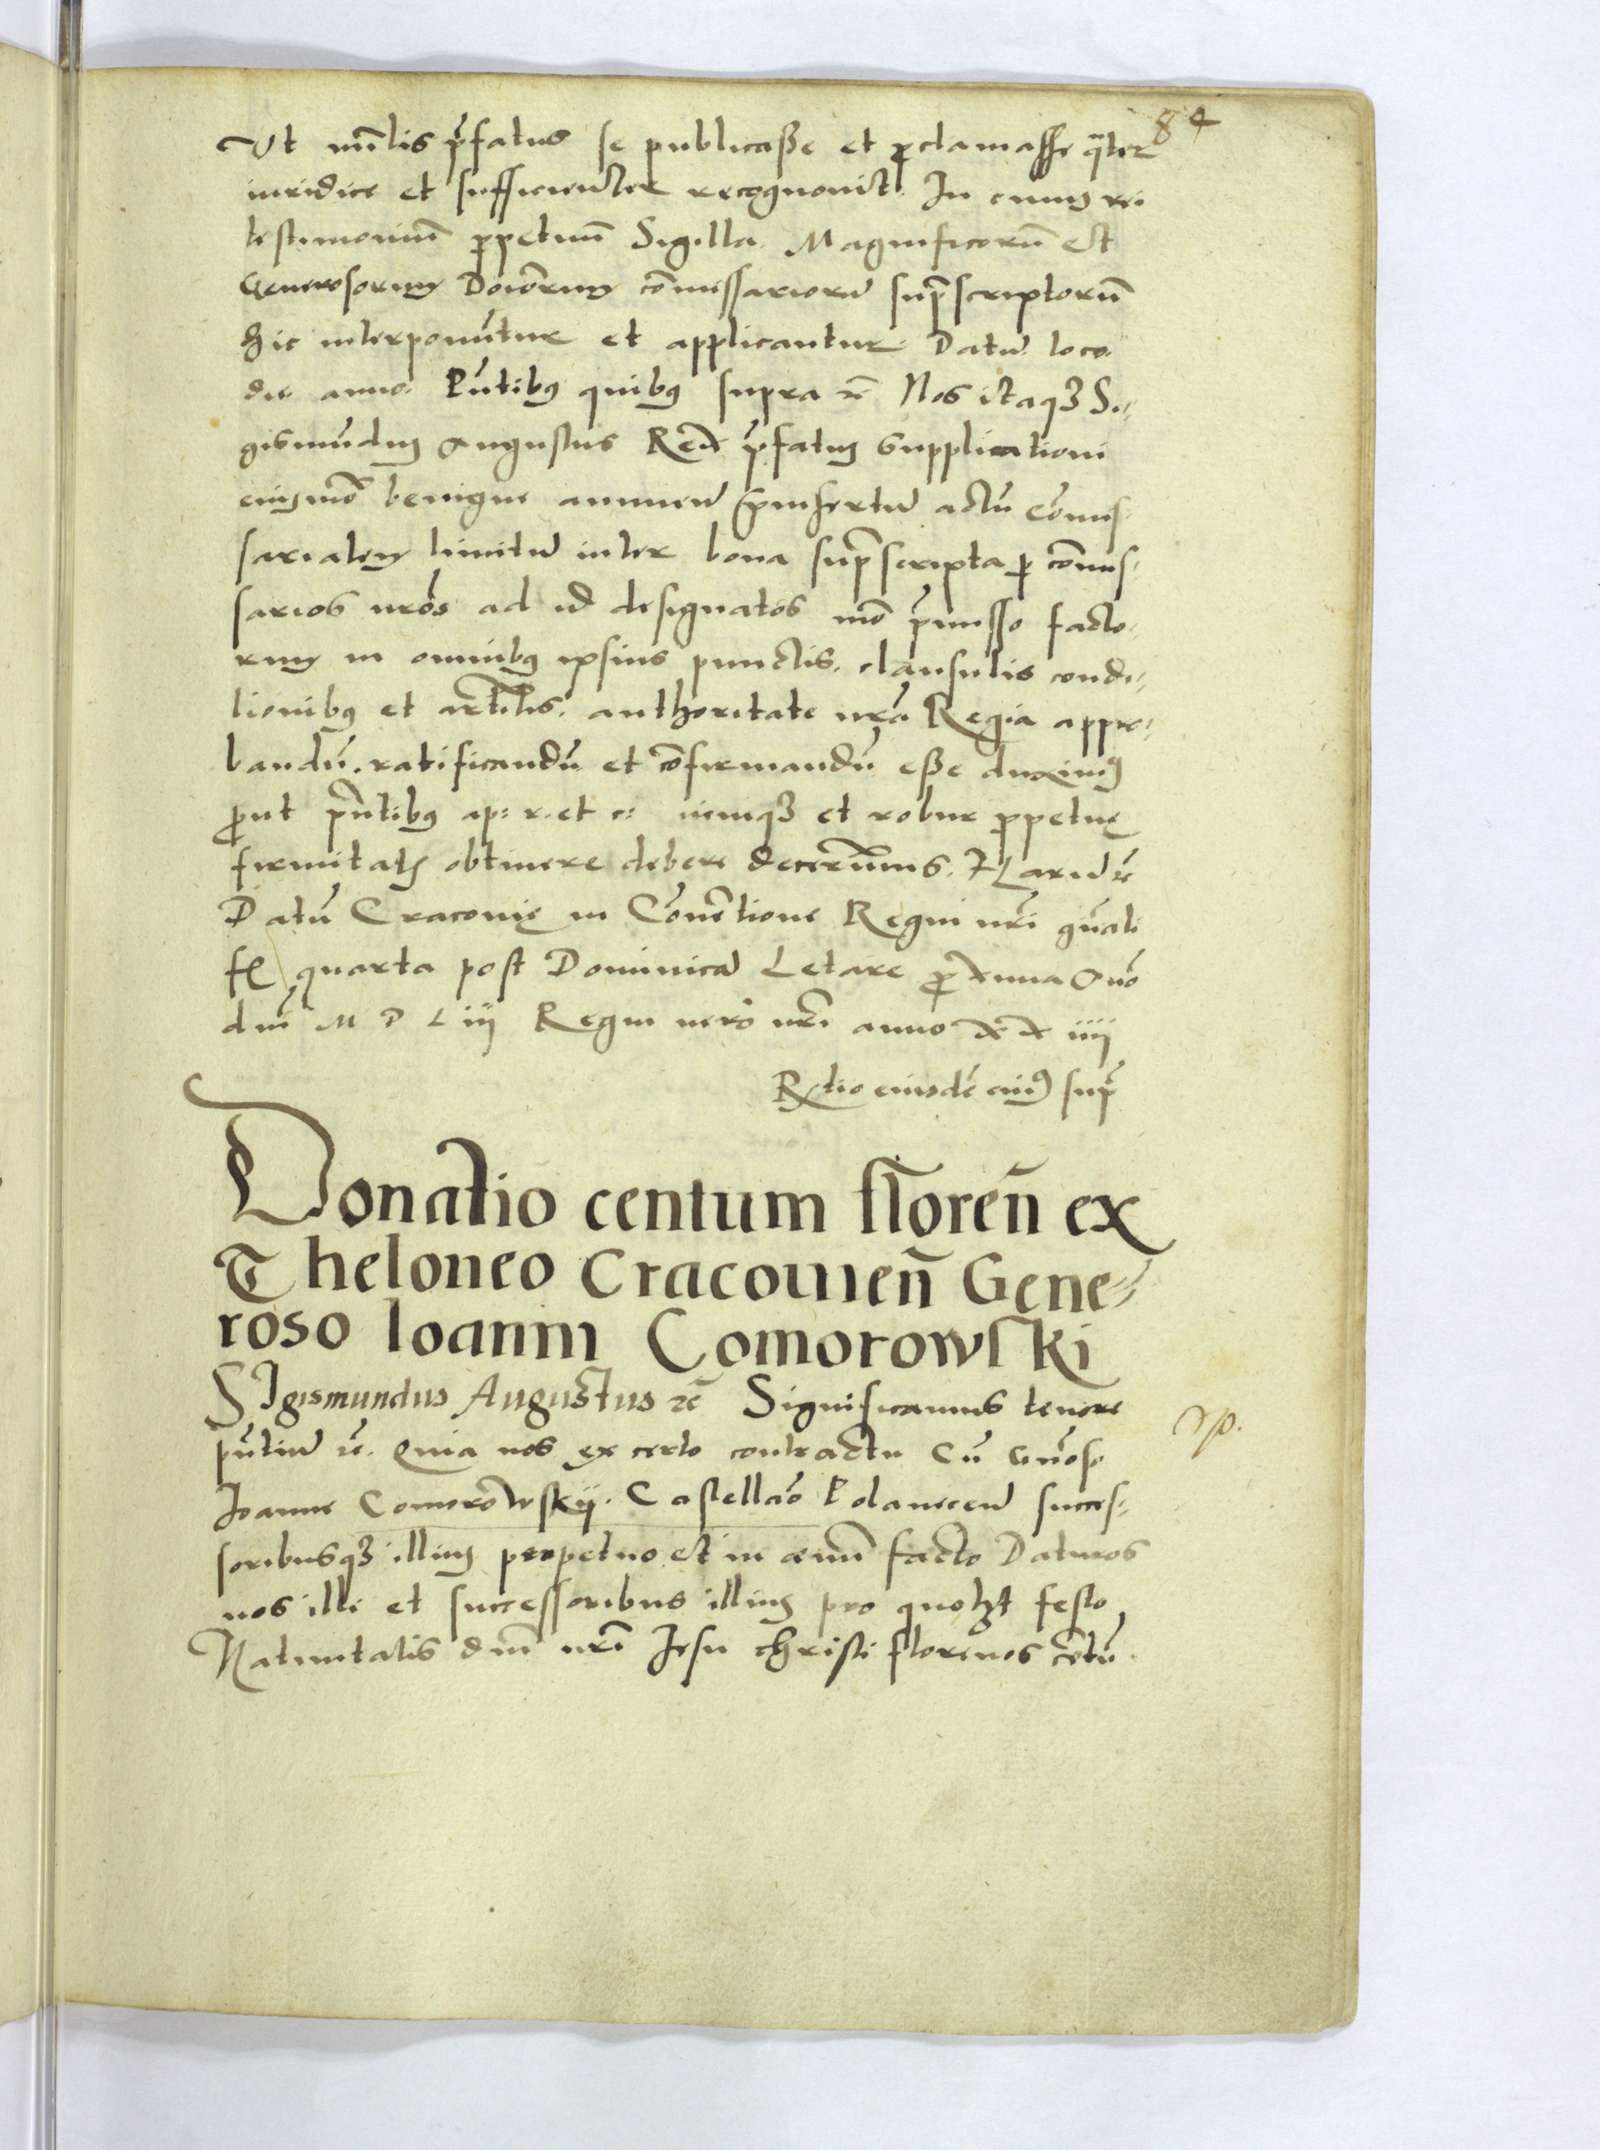 84
Vt mi͠lis p͠fatus se publicasse et proclamasse q͠ter
iuridice et sufficienter recognouit. In cuius rei
testimoniũ perpetuũ Sigilla Magnificorũ Et
Generosorum Do͠iorum co͠missariorũ sup͠scriptorũ
hic interponũtur et applicantur. Datũ loco
die anno. P͠ntibus quibus supra &c̃ Nos itaqꝫ Si-
gismũdus Augustus Rex p͠fatus Supplicationi
eiusmo͠ benigne annuen̄ p͠insertũ actũ Co͠mis-
sarialem limitũ inter bona sup͠scripta per co͠mis-
sarios nr͠os ad id designatos mo͠ p͠misso facto-
rum in omnibus ipsius punctis. clausulis condi-
tionibus et artic͠lis. authoritate nr͠a Regia appro-
bandũ. ratificandũ et co͠firmandũ esse duximus
prout p͠ntibus ap: r. et c: uimqꝫ et robur perpetuę
firmitatis obtinere debere decerni͠mus. Harũ &c̃
Datũ Cracouię in Co͠uẽtione Regni nr͠i gn͠ali
f͠e quarta post Dominicã Letare proxima Año
dn͠i M D L iij Regni uero nr͠i anno x x iiij
R͠elatio eiusdẽ cuius sup͠
Donatio centum florẽn ex
Theloneo Cracouien̄ Gene-
roso Ioanni Comorowski
SIgismundus Augustus &c̃ Significamus tenore
p͠ntiũ &c̃. Quia nos ex certo contractu Cũ Gn͠oso
Joanne Comorowskij. Castella͠o Polanecen̄ succes-
soribusqꝫ illius perpetuo et in æuũ facto Daturos
nos illi et successoribus illius pro quolꝫt festo
Natiuitatis dn͠i nr͠i Jesu christi florenos cẽtũ.